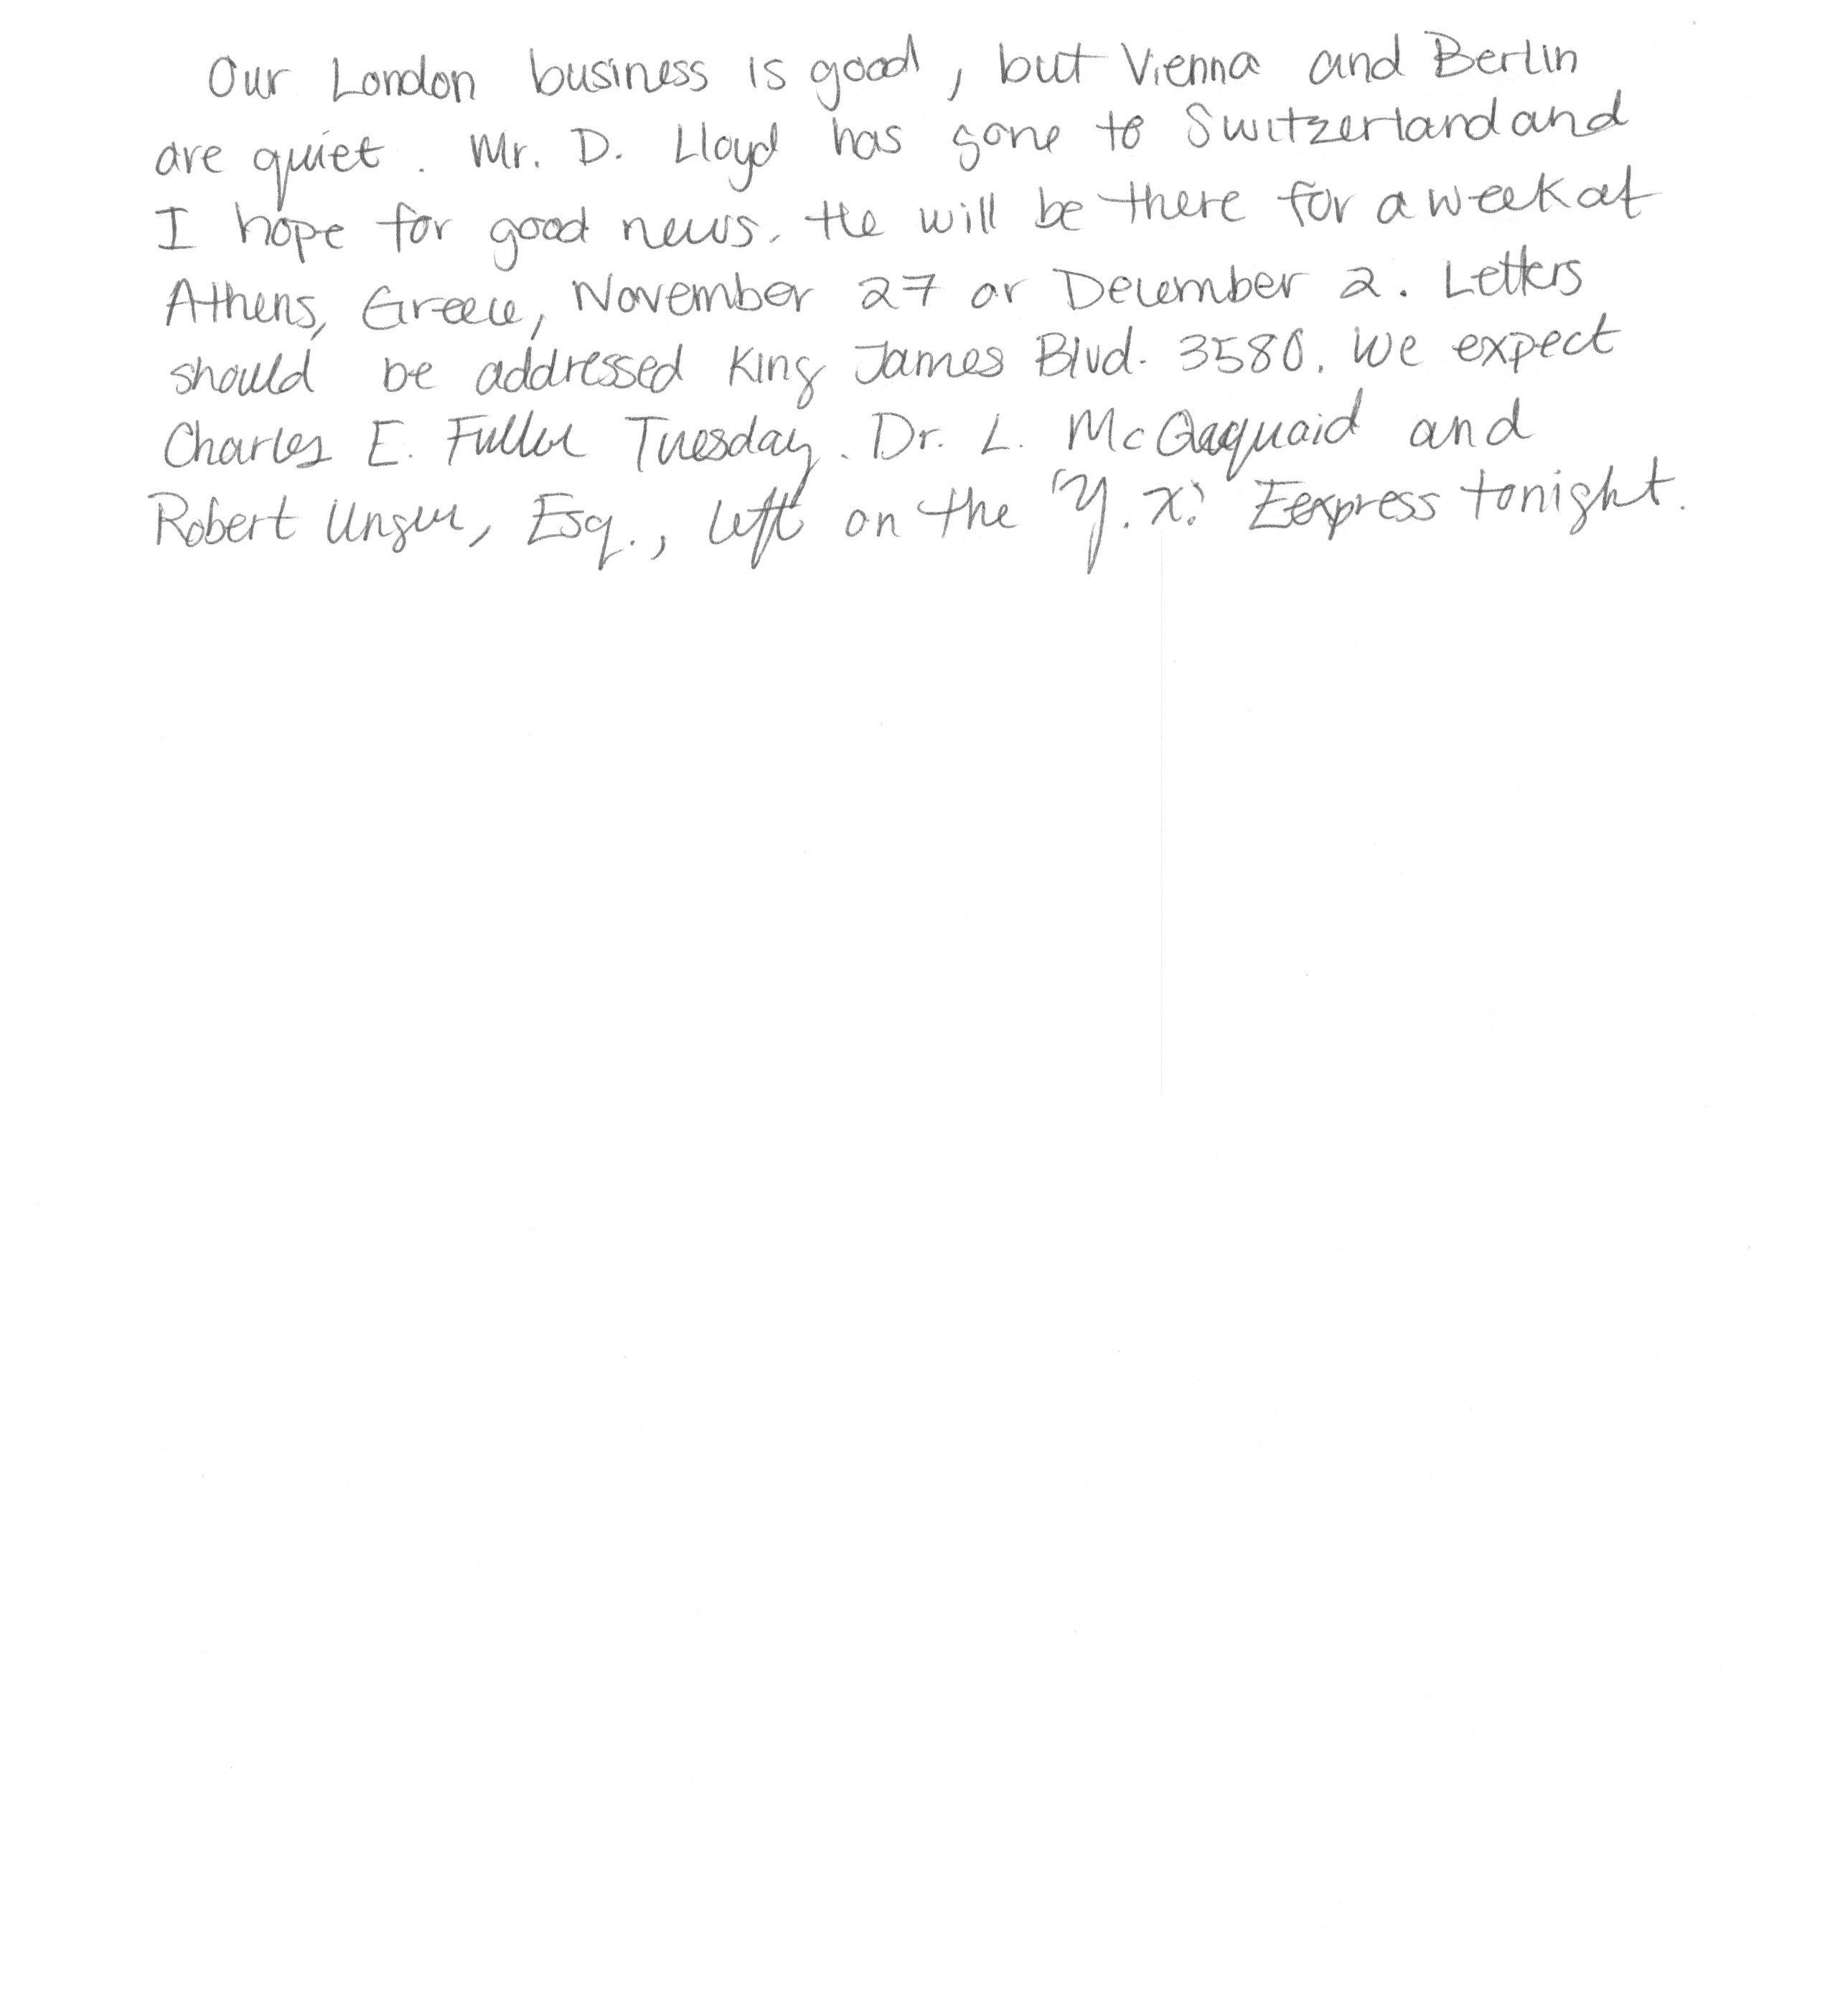 Our London business is good, but Vienna and Berlin
are quiet. Mr. D. Lloyd has gone to Switzerland and
I hope for good news. He will be there for a week at
Athens, Greece, November 27 or December 2. Letters
should be addressed King James Blvd. 3580. We expect
Charles E. Fuller Tuesday. Dr. L. McQaquaid and
Robert Unger, Esq., left on the 'Y.X.' Eexpress tonight.